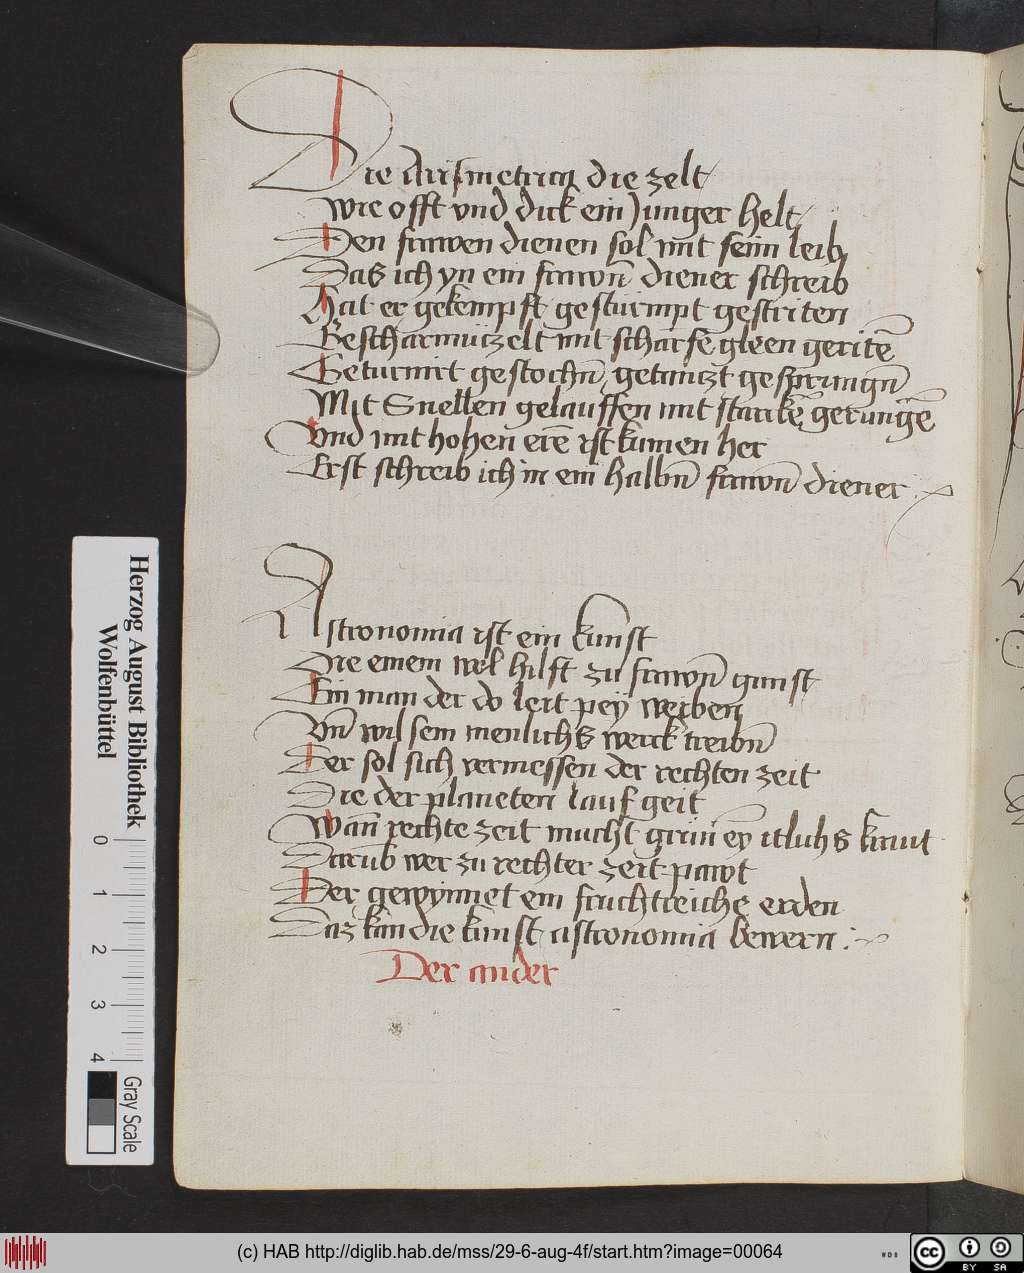 Die Arismetrica die zelt
Wie offt vnd dick ein Junger helt
Den frawen dienen sol mit seim leib
Das ich yn ein frawen̄ diener schreib
Hat er gekempft gesturmpt gestriten
Gescharmutzelt mit scharfe gleen geritē
Geturnirt gestochn̄ getantzt gesprungn̄
Mit Snellen gelauffen mit starkē gerungē
Vnd mit hohen erē ist kumen her
Erst schreib ich in ein halbn̄ frawn̄ diener
Astronomia ist ein kunst
Die einem wol hilft zu frawn̄ gunst
Ein man der do leit pey weiben
Vn̄ wil sein menlichs werck treibn̄
Der sol sich vermessen der rechten zeit
Die der planeten lauf geit
Wan̄ rechte zeit macht grun ey itlichs kraut
Darub wer zu rechter zeit pawt
Der gewynnet ein fruchtreiche erden
Daz kan die kunst astronomia bewern :
Der ander
Herzog August Bibliothek
Wolfenbüttel
0 1 2 3 4
Gray Scale
(c) HAB http://diglib.hab.de/mss/29-6-aug-4f/start.htm?image=00064
WDB
cc
BY SA